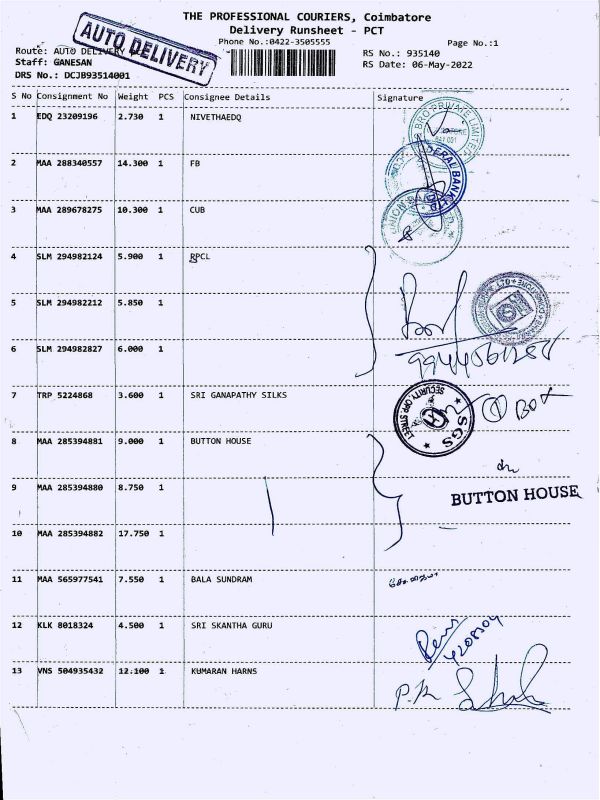 THE PROFESSIONAL COURIERS, Coimbatore
Delivery Runsheet - PCT
Phone No.:0422-3505555
Page No.:1
AUTO DELIVERY
Route: AUTO DELIVERY
RS No.: 935140
Staff: GANESAN
RS Date: 06-May-2022
DRS No.: DCJB93514001
S No Consignment No Weight PCS Consignee Details Signature
1 EDQ 23209196 2.730 1 NIVETHAEDQ
BRO PRIVATE LIMITED
2 MAA 288340557 14.300 1 FB
BANK LTD
3 MAA 289678275 10.300 1 CUB
UNION
4 SLM 294982124 5.900 1 BPCL
5 SLM 294982212 5.850 1
6 SLM 294982827 6.000 1
7 TRP 5224868 3.600 1 SRI GANAPATHY SILKS
SGS
SECURITY
1 Box
8 MAA 285394881 9.000 1 BUTTON HOUSE
9 MAA 285394880 8.750 1
BUTTON HOUSE
10 MAA 285394882 17.750 1
11 MAA 565977541 7.550 1 BALA SUNDRAM
12 KLK 8018324 4.500 1 SRI SKANTHA GURU
13 VNS 504935432 12.100 1 KUMARAN HARNS